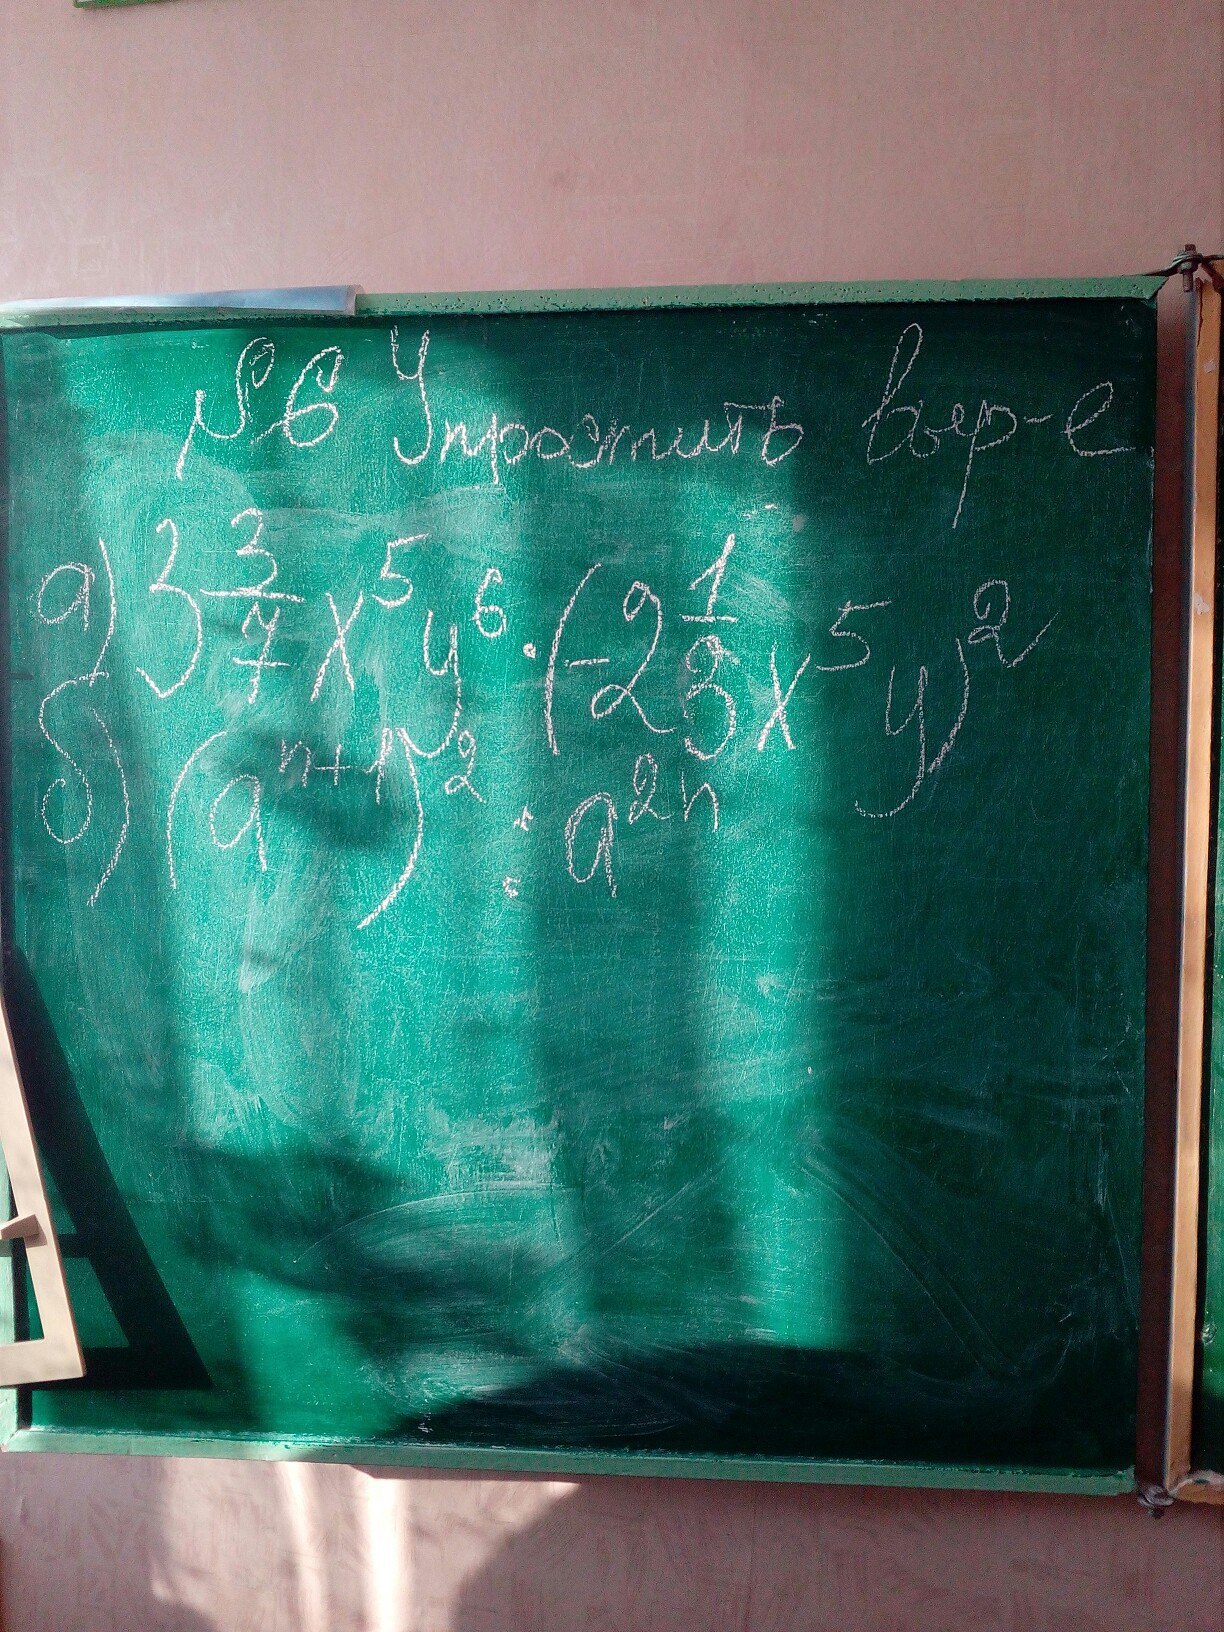 №6 Упростить выр-е
а) 3 3/7 x⁵y⁶ · (-2 1/3 x⁵y)²
б) (aⁿ⁺¹)² : a²ⁿ